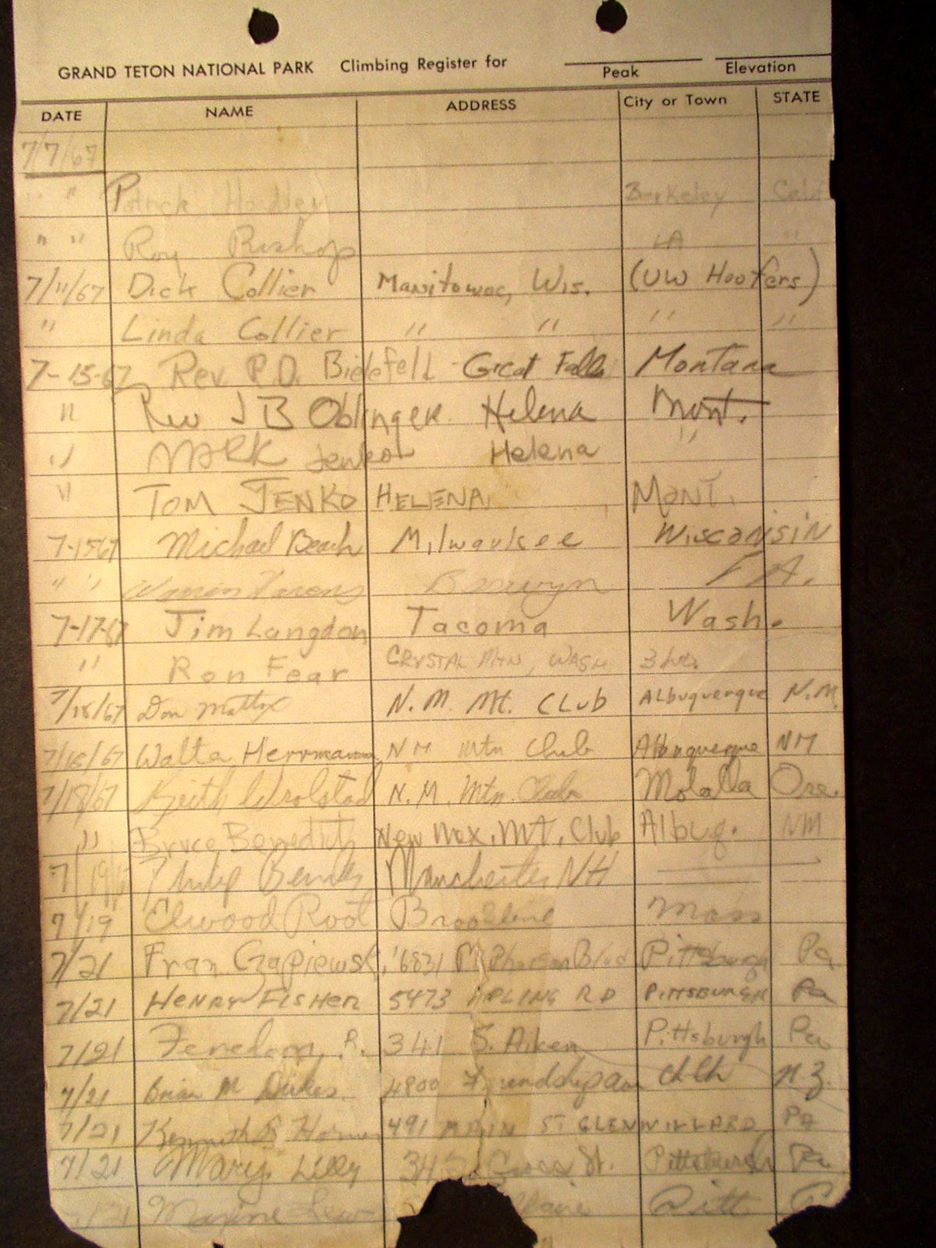 GRAND TETON NATIONAL PARK Climbing Register for
Peak Elevation
DATE NAME ADDRESS City or Town STATE
7/7/67
" " Patrick Berkeley Calif
" " Roy Bishop LA "
7/11/67 Dick Collier Manitowoc, Wis. (UW Hoofers)
" Linda Collier " " " "
7-15-67 Rev. P.D. Bielefell Great Falls Montana
" Rev J B Oblinger Helena Mont.
" MARK Jenko Helena "
" TOM JENKO HELENA, MONT.
7-15 67 Michael Beach Milwaukee Wisconsin
" "
7-17-67 Jim Langdon Tacoma Wash.
" Ron Fear CRYSTAL MTN, WASH 3 hrs.
7/18/67 Don Mattox N. M. Mt. CLUB Albuquerque N.M.
7/18/67 Walta Herrmann NM Mtn Club Albuquerque NM
7/18/67 Keith Wrolstad N.M. Mtn. Club Molalla Ore.
" Bruce Benedict New Mex. Mt. Club Albuq. NM
7/19/67 Philip Manchester NH
7/19 Elwood Root Brookline Mass
7/21 Fran Czapiewski, 6831 McPherson Blvd Pittsburgh Pa
7/21 HENRY FISHER 5473 RD PITTSBURGH Pa
7/21 R. 341 S. Aiken Pittsburgh Pa
7/21 Brian M Dukes. 4800 Friendship Ave chch N.Z.
7/21 Kenneth R 491 MAIN ST GLENWILLARD PA
7/21 Mary Lilly St. Pittsburgh Pa
7/21 Maxine Pitt P